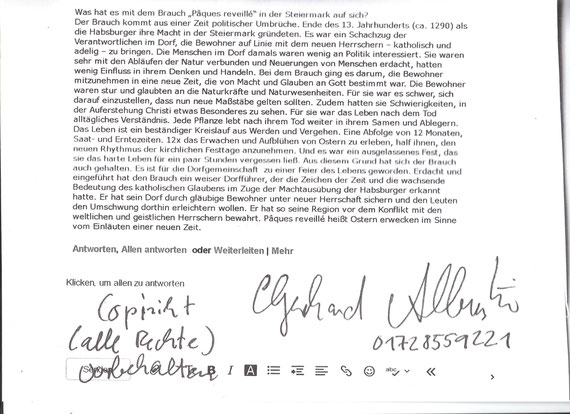 Was hat es mit dem Brauch „Pâques reveillé“ in der Steiermark auf sich?
Der Brauch kommt aus einer Zeit politischer Umbrüche. Ende des 13. Jahrhunderts (ca. 1290) als
die Habsburger ihre Macht in der Steiermark gründeten. Es war ein Schachzug der
Verantwortlichen im Dorf, die Bewohner auf Linie mit dem neuen Herrschern – katholisch und
adelig – zu bringen. Die Menschen im Dorf damals waren wenig an Politik interessiert. Sie waren
sehr mit den Abläufen der Natur verbunden und Neuerungen von Menschen erdacht, hatten
wenig Einfluss in ihrem Denken und Handeln. Bei dem Brauch ging es darum, die Bewohner
mitzunehmen in eine neue Zeit, die von Macht und Glauben an Gott bestimmt war. Die Bewohner
waren stur und glaubten an die Naturkräfte und Naturwesenheiten. Für sie war es schwer, sich
darauf einzustellen, dass nun neue Maßstäbe gelten sollten. Zudem hatten sie Schwierigkeiten, in
der Auferstehung Christi etwas Besonderes zu sehen. Für sie war das Leben nach dem Tod
alltägliches Verständnis. Jede Pflanze lebt nach ihrem Tod weiter in ihrem Samen und Ablegern.
Das Leben ist ein beständiger Kreislauf aus Werden und Vergehen. Eine Abfolge von 12 Monaten,
Saat- und Erntezeiten. 12x das Erwachen und Aufblühen von Ostern zu erleben, half ihnen, den
neuen Rhythmus der kirchlichen Festtage anzunehmen. Und es war ein ausgelassenes Fest, das
sie das harte Leben für ein paar Stunden vergessen ließ. Aus diesem Grund hat sich der Brauch
auch gehalten. Es ist für die Dorfgemeinschaft zu einer Feier des Lebens geworden. Erdacht und
eingeführt hat den Brauch ein weiser Dorfführer, der die Zeichen der Zeit und die wachsende
Bedeutung des katholischen Glaubens im Zuge der Machtausübung der Habsburger erkannt
hatte. Er hat sein Dorf durch gläubige Bewohner unter neuer Herrschaft sichern und den Leuten
den Umschwung dorthin erleichtern wollen. Er hat so seine Region vor dem Konflikt mit den
weltlichen und geistlichen Herrschern bewahrt. Pâques reveillé heißt Ostern erwecken im Sinne
vom Einläuten einer neuen Zeit.
Antworten, Allen antworten oder Weiterleiten | Mehr
Klicken, um allen zu antworten
Copiriht
(alle Rechte)
vorbehalten
Gerhard
01728559221
B I A abc